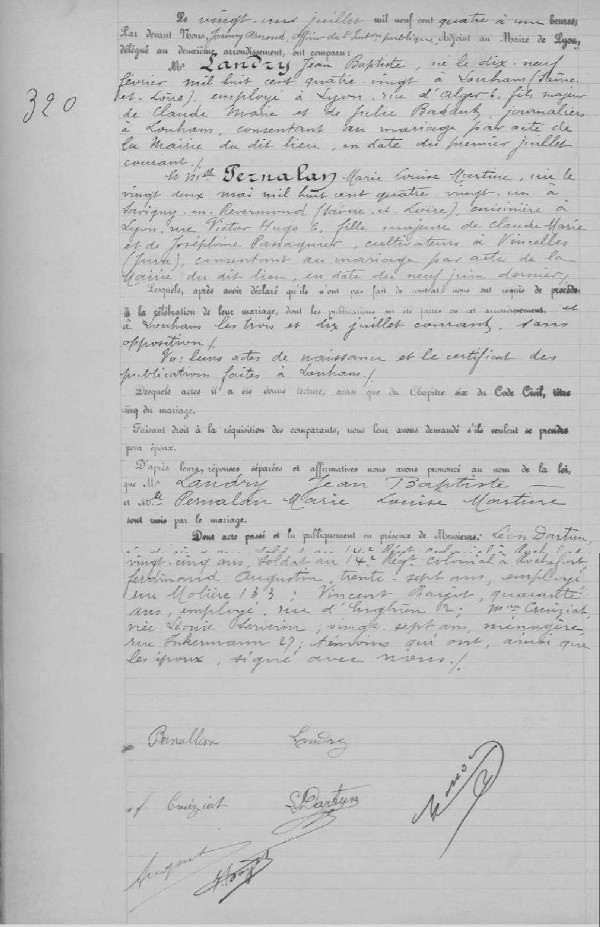 Le vingt trois juillet mil neuf cent quatre à onze heures;
Par devant Nous, Arnoud, Officier de l'Instion publique, Adjoint au Maire de Lyon,
délégué au deuxième arrondissement, ont comparu:
Mr Landry Jean Baptiste, né le dix-neuf
février mil huit cent quatre vingt à Louhans (Saône-
et-Loire), employé à Lyon, rue d'Alger 6, fils majeur
de Claude Marie et de Julie journaliers
à Louhans, consentant au mariage par acte de
la Mairie du dit lieu, en date du premier juillet
courant./
320
Et Mlle Pernalan Marie Louise Martine, née le
vingt deux mai mil huit cent quatre vingt-un à
Savigny-en-Revermond (Saône-et-Loire), cuisinière à
Lyon, rue Victor Hugo 6, fille majeure de Claude Marie
et de Joséphine Passaquier, cultivateurs à Vincelles
(Jura), consentant au mariage par acte de la
Mairie du dit lieu, en date du neuf juin dernier;
Lesquels, après avoir déclaré qu'ils n'ont pas fait de contrat nous ont requis de procéder
à la célébration de leur mariage, dont les publications ont été faites en cet arrondissement et
à Louhans les trois et dix juillet courant, sans
opposition./
Vu: leurs actes de naissance et le certificat des
publications faites à Louhans./
Desquels actes il a été donné lecture, ainsi que du Chapitre six du Code Civil, titre
cinq du mariage.
Faisant droit à la réquisition des comparants, nous leur avons demandé s'ils veulent se prendre
pour époux.
D'après leurs réponses séparées et affirmatives nous avons prononcé au nom de la loi,
que Mr Landry Jean Baptiste
et Mlle Pernalan Marie Louise Martine
sont unis par le mariage.
Dont acte passé et lu publiquement en présence de Messieurs: Léon Dartun,
vingt-cinq ans, soldat au 14e Régt colonial à Rochefort,
ferdinand Augustin, trente-sept ans, employé
rue Molière 183; Vincent Barjot, quarante
ans, employé, rue d'Enghien 12; Mme Cruiziat
née Léonie vingt-sept ans, ménagère
rue Inkermann 27; témoins qui ont, ainsi que
les époux, signé avec nous./
Pernallan Landry
Cruiziat LDartun